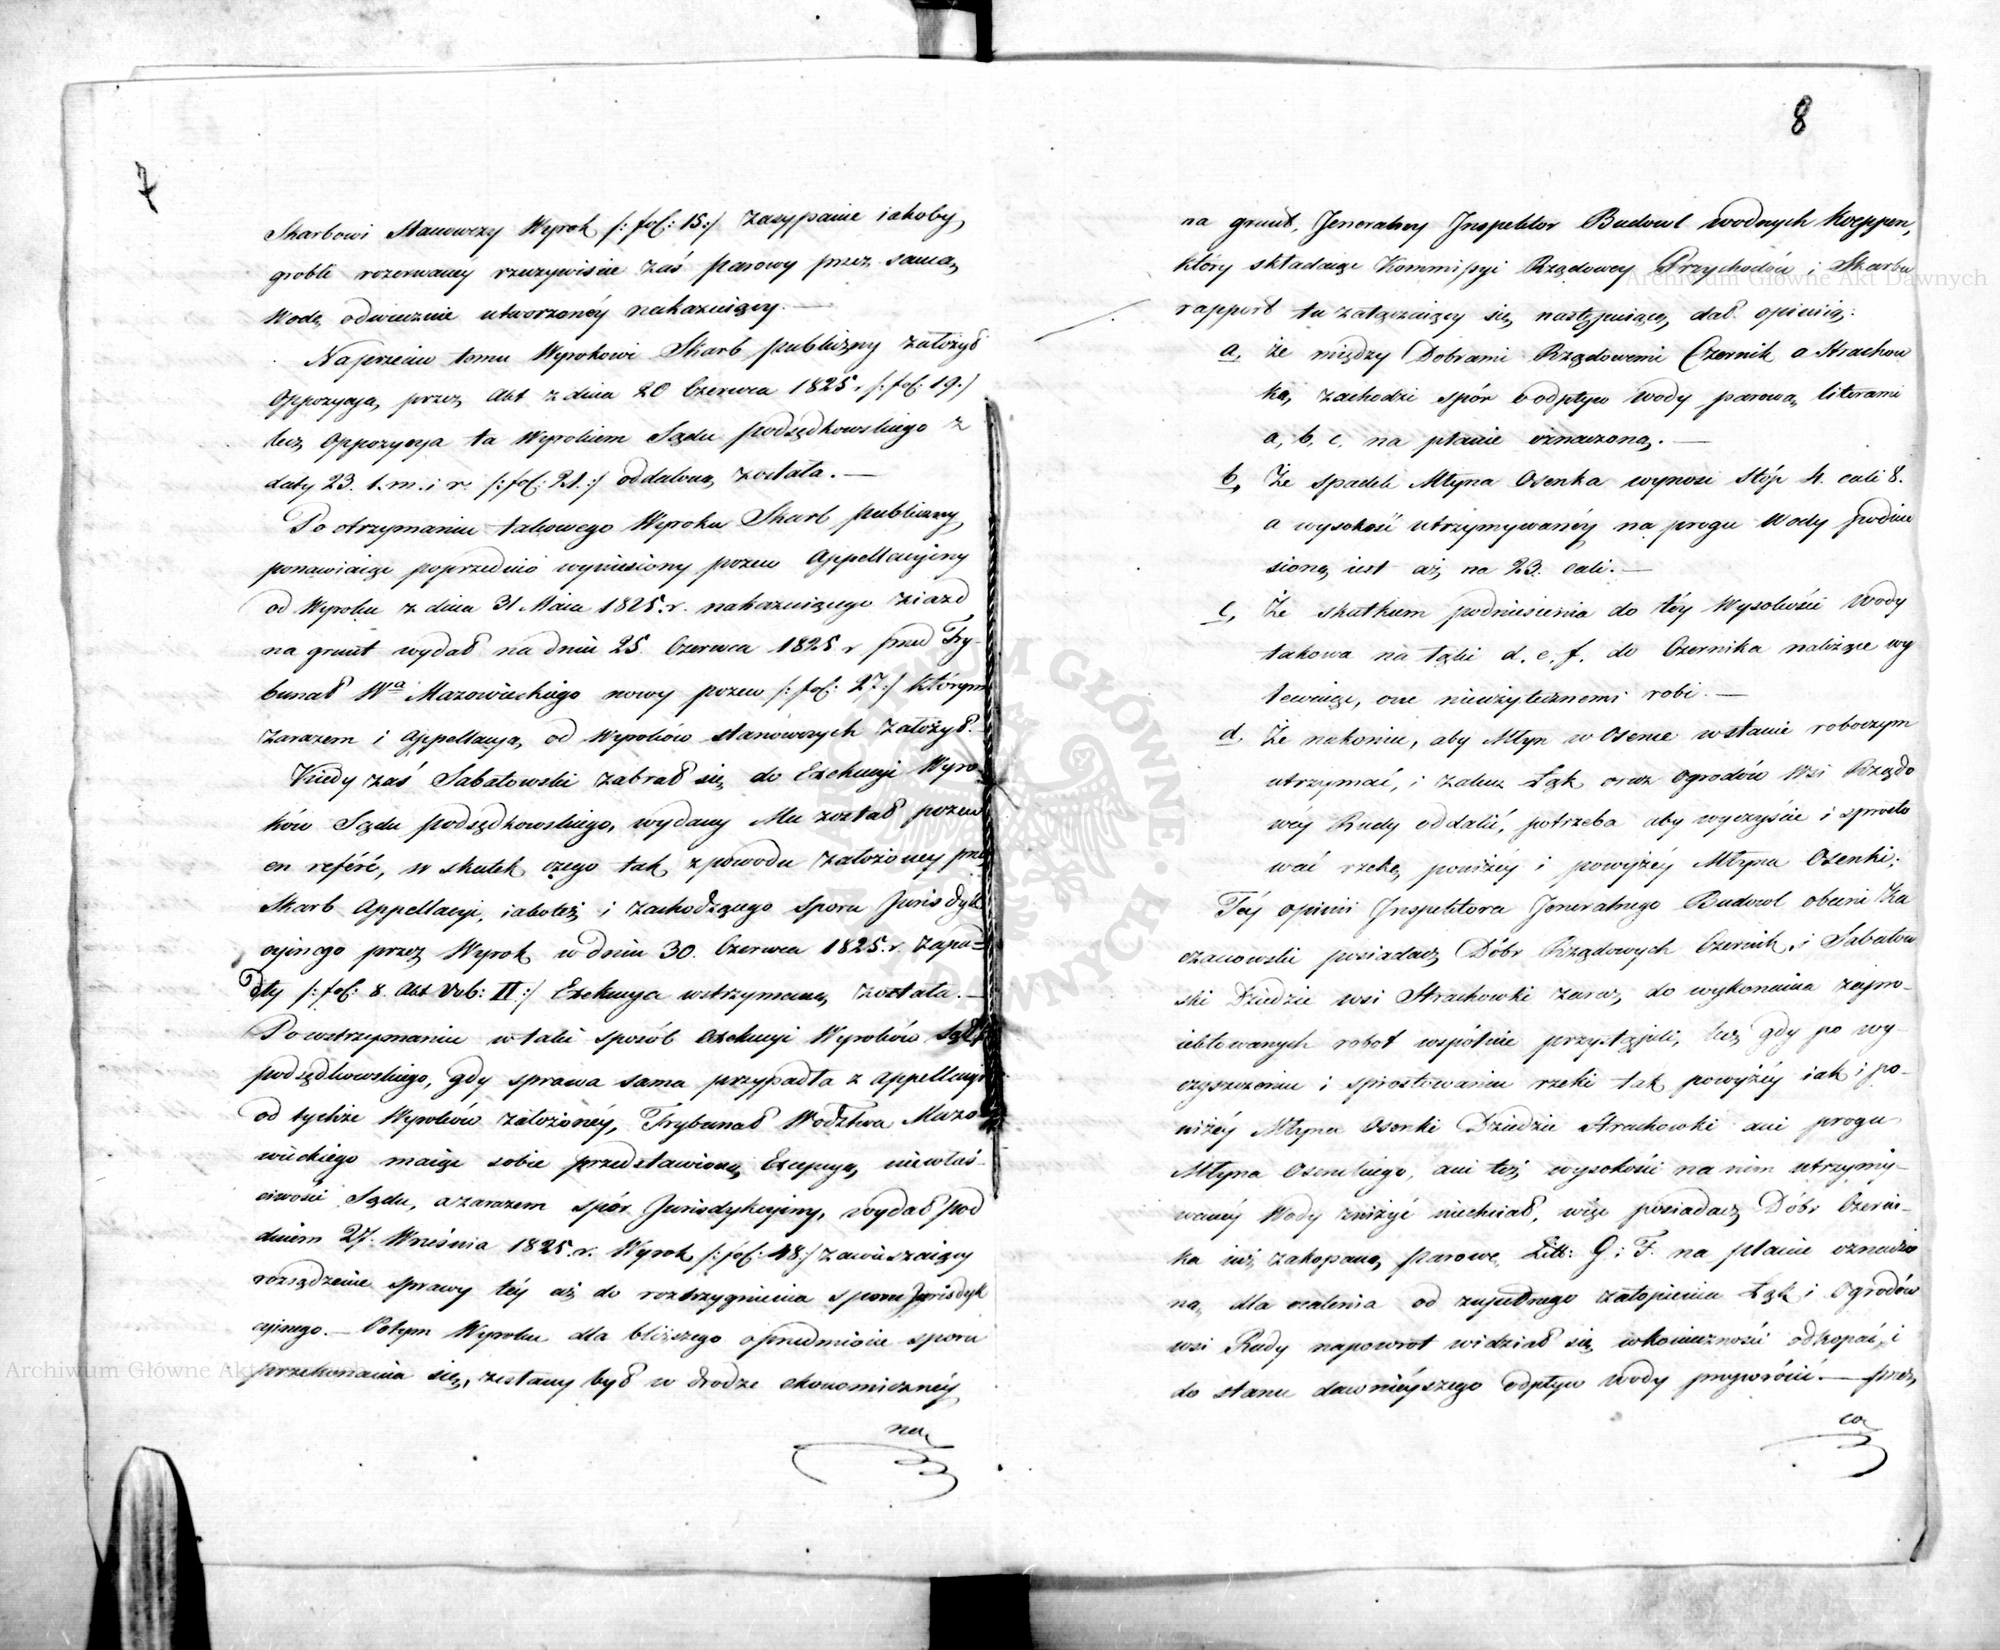 7
Skarbowi Stanowczy Wyrok /: fol: 15:/ zasypanie iakoby
grobli rozerwaney rzeczywiście zaś Parowy przez samą
Wodę odwiecznie utworzonéy nakazuiący. —
Naprzeciw temu Wyrokowi Skarb publiczny założył
Oppozycyą, przez Akt z dnia 20 Czerwca 1825 r /: fol: 19:/
lecz Oppozycya ta Wyrokiem Sądu podsędkowskiego z
daty 23. t. m. i r. /: fol: 21.:/ oddaloną została. —
Po otrzymaniu takowego Wyroku Skarb publiczny
ponawiaiąc poprzednio wyniesiony pozew Appellacyiny
od Wyroku z dnia 31 Maia 1825. r. nakazuiącego ziazd
na grunt wydał na dniu 25 Czerwca 1825 r przed Try-
bunał Wa Mazowieckiego nowy pozew /: fol: 27:/ którym
zarazem i Appellacyą od Wyroków stanówczych założył. —
Kiedy zaś Sabatowski zabrał się do Exekucyi Wyro-
ków Sądu podsędkowskiego, wydany Mu został pozew
en reféré, w skutek czego tak z powodu założoney przez
Skarb Appellacyi, iakoteż i zachodzącego sporu Jurisdyk
cyinego przez Wyrok w dniu 30. Czerwca 1825. r. zapa-
dły /: fol: 8. Akt Vol: II:/ Exekucya wstrzymaną została. —
Po wstrzymaniu w taki sposób Exekucyi Wyroków Sądu
podsędkowskiego, gdy sprawa sama przypadła z Appellacyi
od tychże Wyroków założonéy, Trybunał Wodztwa Mazo
wieckiego maiąc sobie przedstawioną Excepcyą niewłaś-
ciwości Sądu, a zarazem spór Jurisdykcyiny, wydał pod
dniem 27. Września 1825. r. Wyrok /: fol: 48:/ zawieszaiący
rozsądzenie sprawy téy aż do roztrzygnienia sporu Jurisdyk
cyinego. — Potym Wyroku dla bliższego o przedmiocie sporu
przekonania się, zesłany był w drodze ekonomicznéy
na
8
na grunt, Jeneralny Inspektor Budowl wodnych Koeppen,
który składaiąc Kommissyi Rządowey Przychodów i Skarbu
rapport tu załączaiący się następuiącą dał opinią:
a, że między Dobrami Rządowemi Czernik a Strachow
ką, zachodzi spór o odpływ wody parową literami
a, b, c. na planie oznaczoną. —
b, Że spadek Młyna Osenka wynosi stóp 4. cali 8.
a wysokość utrzymywanéy na progu Wody podnie
sioną iest aż na 23. cali. —
c, Że skutkiem podniesienia do téy wysokości wody
takowa na łąki d. e. f. do Czernika należące wy
lewaiąc, one nieużytecznemi robi. —
d, Że nakoniec, aby Młyn w Osence w stanie roboczym
utrzymać, i zalew Łąk oraz Ogrodów Wsi Rządo
wéy Rudy oddalić, potrzeba aby wyczyście i sprosto
wać rzekę poniżéy i powyżéy Młyna Osenki.
Téy opinii Inspektora Jeneralnego Budowl obecni Ka
czanowski posiadacz Dóbr Rządowych Czernik, i Sabatow
ski Dziedzic wsi Strachowki zaraz, do wykonania zapro-
iektowanych robot wspólnie przystąpili, lecz gdy po wy-
czyszczeniu i sprostowaniu rzeki tak powyżéy iak i po-
niżéy Młyna Osenki Dziedzic Strachowki ani progu
Młyna Osenckiego, ani też wysokości na nim utrzymy-
wanéy Wody zniżyć niechciał, więc posiadacz Dóbr Czerni-
ka iuż zakopaną parowę Litt: G: F. na planie oznaczo
ną, dla ocalenia od zupełnego zatopienia Łąk i Ogrodów
wsi Rudy napowrot widział się w konieczności odkopać, i
do stanu dawnieyszego odpływ wody przywrócić. — przez
co